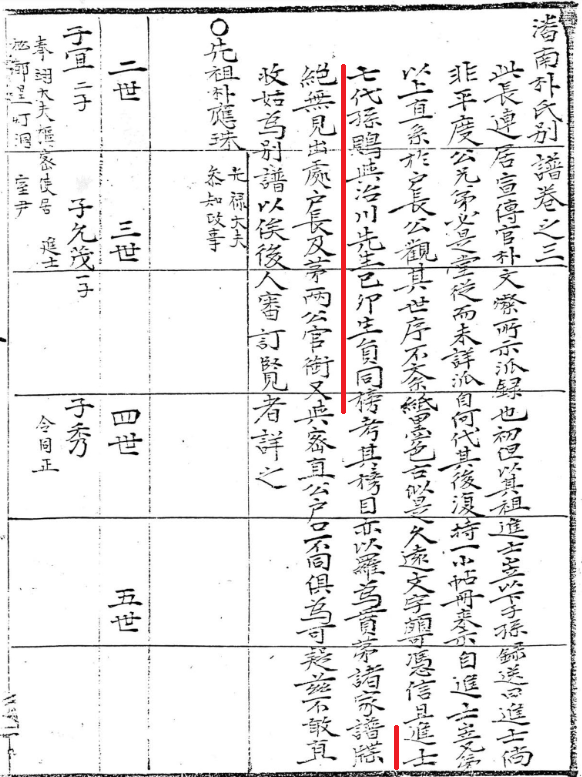 潘南朴氏別譜卷之三
此長連居宣傳官朴文燦所示派録也初但以其祖進士岦以下子孫録送曰進士尙
非平度公兄弟必是堂從而未詳派自何代其後復持一小帖冊來亦自進士岦又第
以上直系於户長公觀其世序不紊紙墨色古似是久遠文字頗可憑信且進士
七代孫鷗與治川先生己卯生負同榜考其榜目亦以羅爲貫第諸家譜牒
絕無見出處户長及第兩公官銜又與密直公户口不同俱爲可疑茲不敢直
收姑爲別譜以俟後人審訂賢者詳之
○先祖朴應珠
光禄大夫
叅知政事
二世
三世
四世
五世
子宜 二子
奉翊大夫 密使
子允茂 一子
進士
子秀
令同正